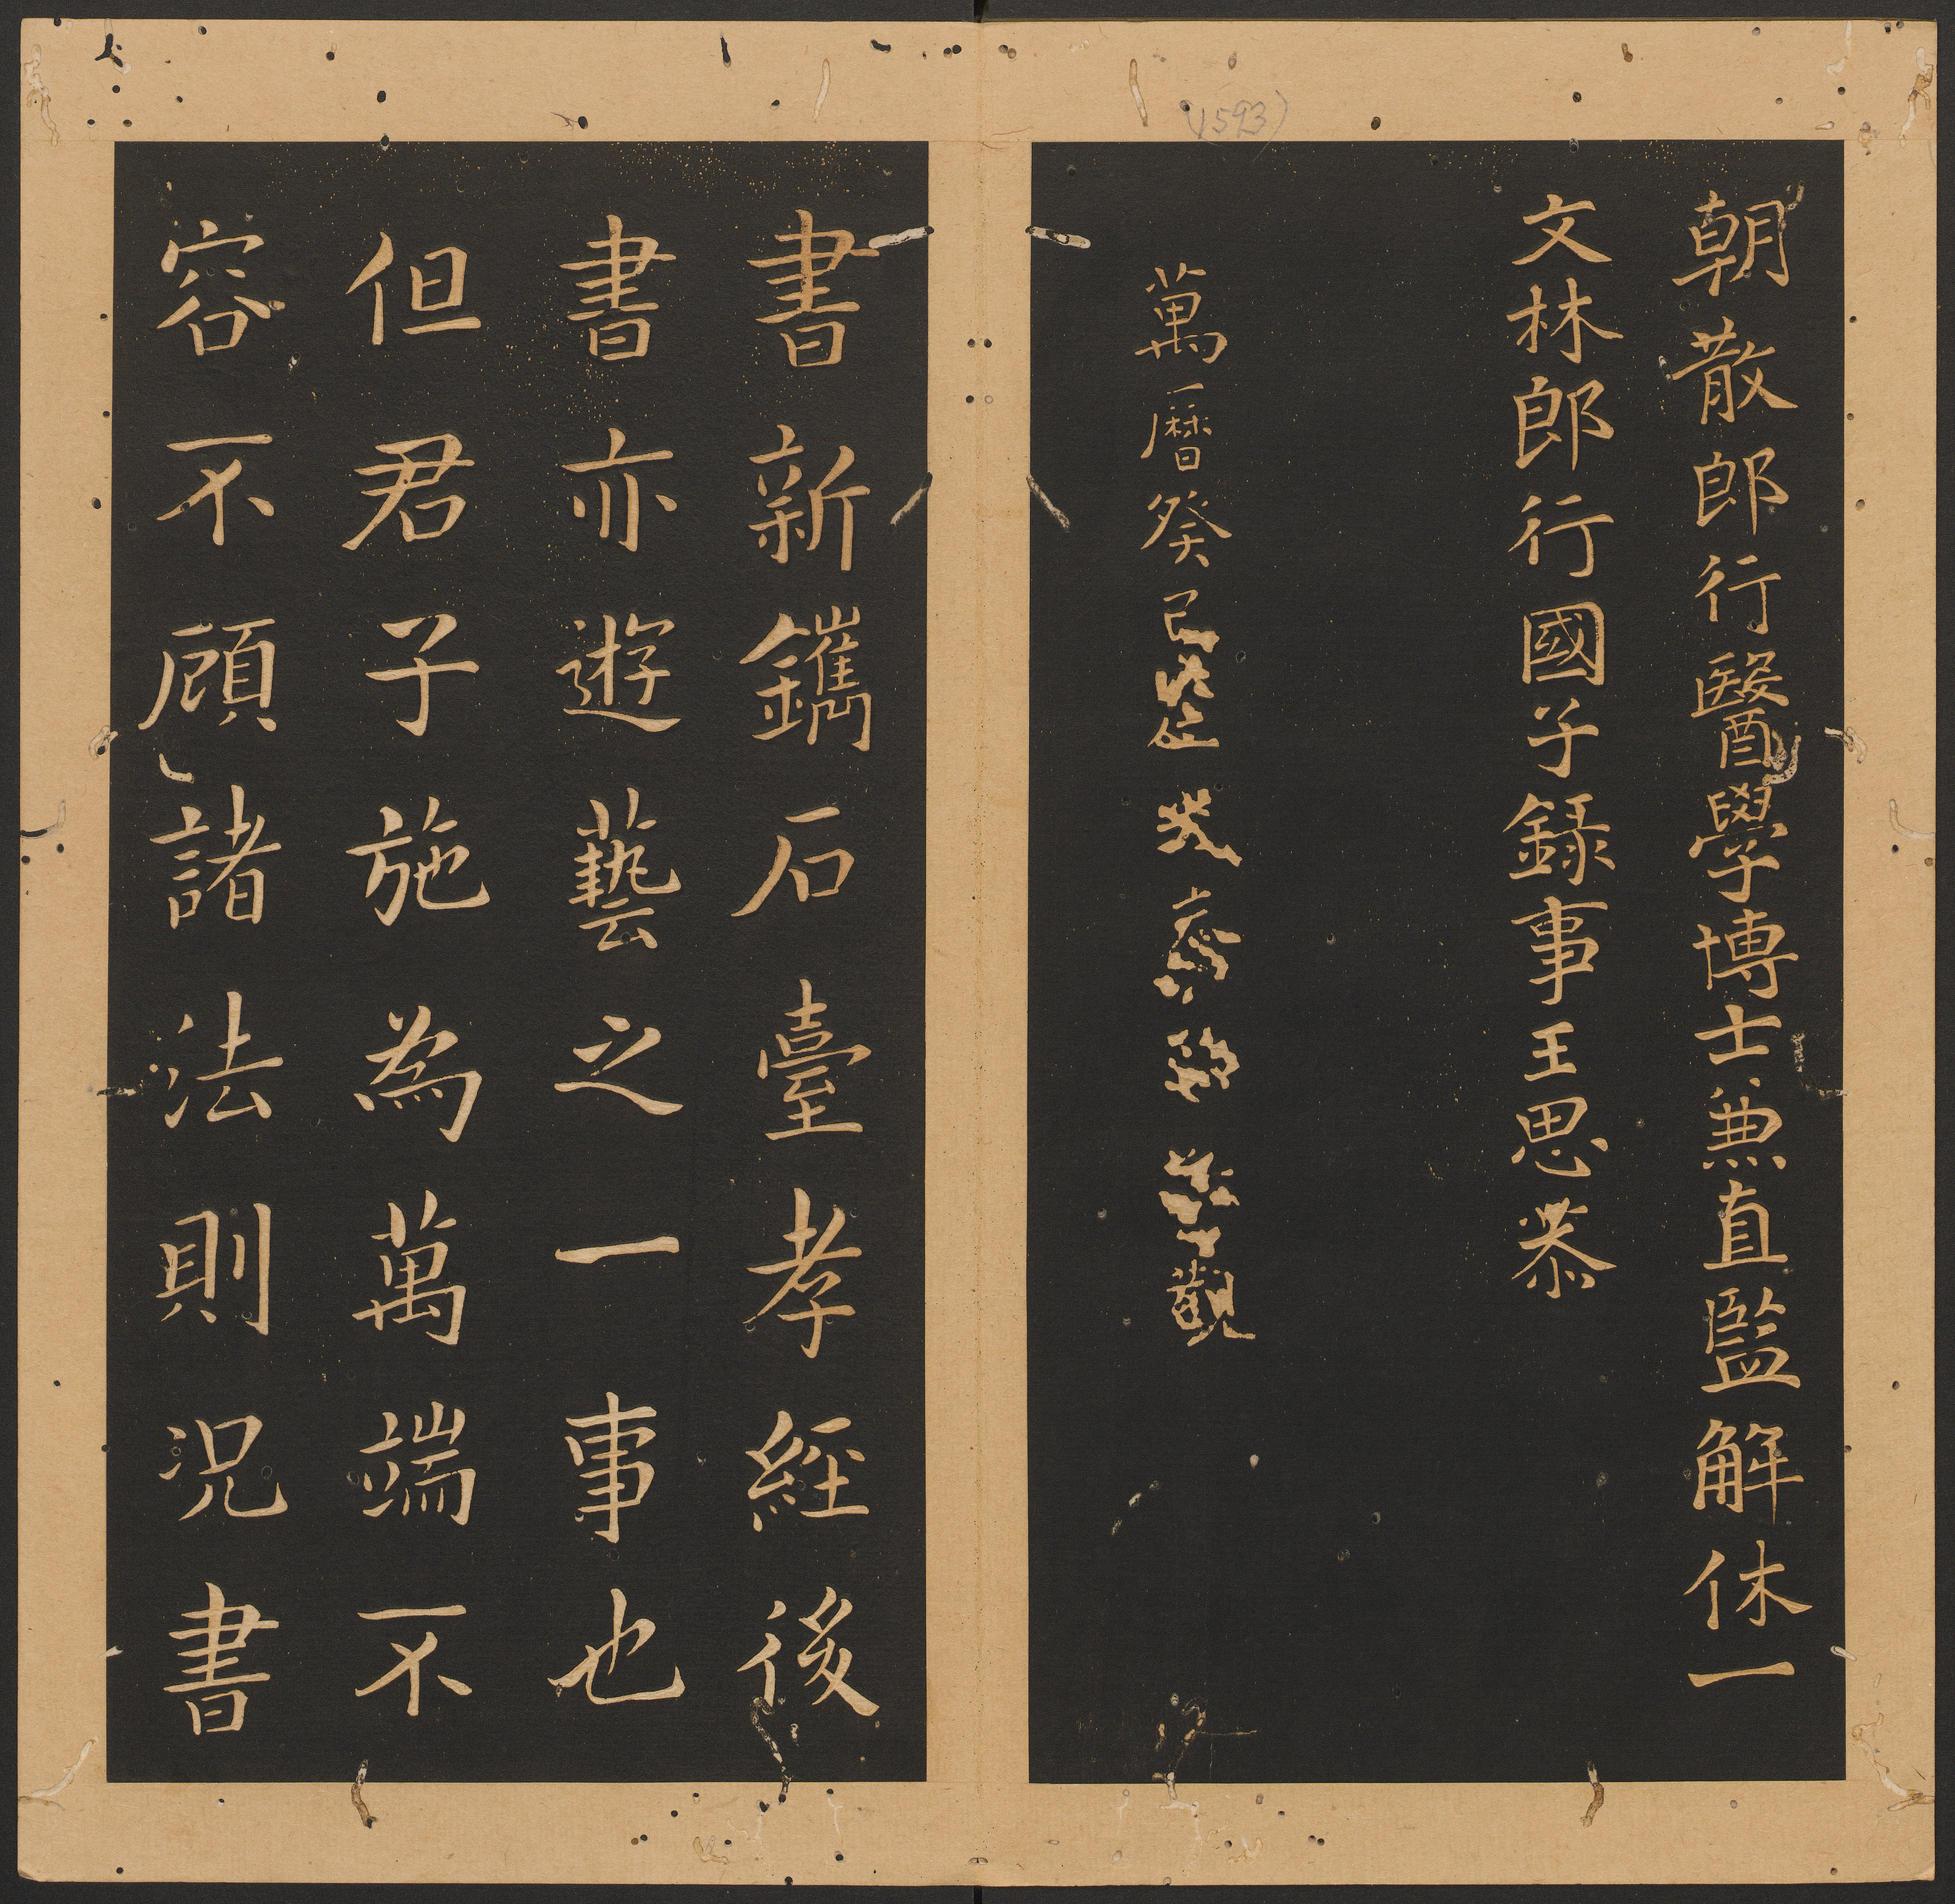 (1593)
朝散郎行醫學博士兼直監解休一
文林郎行國子録事王思恭
萬曆癸巳 觀
書新鐫石臺孝經後
書亦遊藝之一事也
但君子施為萬端不
容不顧諸法則況書